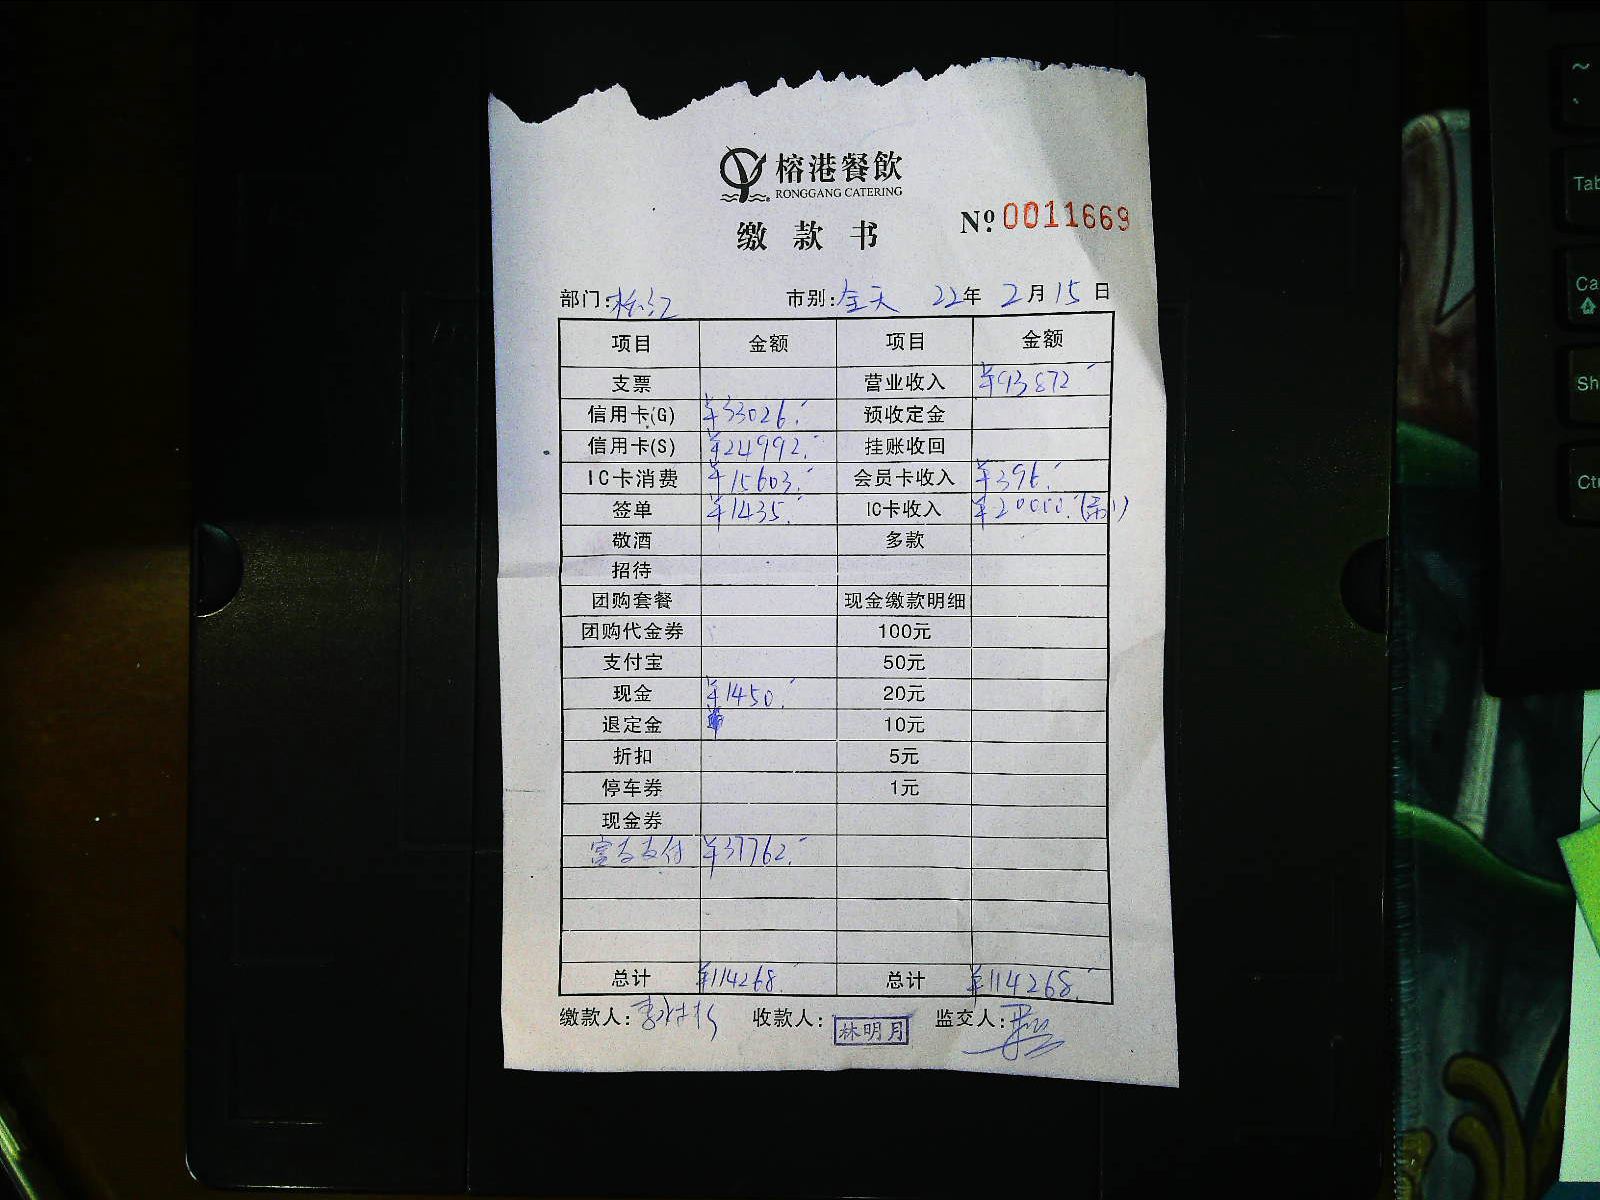 榕港餐飲
RONGGANG CATERING
缴款书 Nº 0011669
部门: 市别:全天 22年 2月15日
项目 金额 项目 金额
支票 营业收入 ¥93872
信用卡(G) ¥33026. 预收定金
信用卡(S) ¥24992. 挂账收回
IC卡消费 ¥15603. 会员卡收入 ¥396.
签单 ¥1435. IC卡收入 ¥20000.
敬酒 多款
招待
团购套餐 现金缴款明细
团购代金券 100元
支付宝 50元
现金 ¥1450. 20元
退定金 10元
折扣 5元
停车券 1元
现金券
富友支付 ¥37762.
总计 ¥114268. 总计 ¥114268.
缴款人: 收款人: 林明月 监交人:
~
`
Tab
Ca
Sh
Ctr